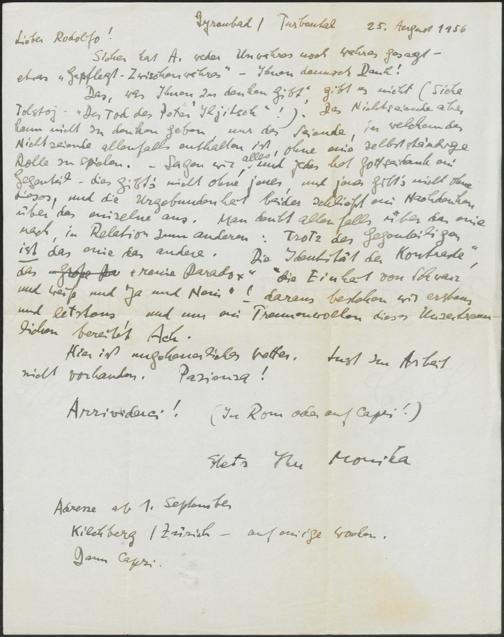 Gyrenbad / Turbental 25. August 1956
Lieber Rodolfo!
Sicher hat A. weder Unwahres noch wahres gesagt –
etwas „Gepflegt-Zwischenwahres“ – Ihnen dennoch Dank!
Das, was Ihnen zu denken gibt, gibt es nicht (Siehe
Tolstoj – „Der Tod des Iljitsch“!). Das Nichtseiende aber
kann nicht zu denken geben nur das Seiende, in welchem das
Nichtseiende allenfalls enthalten ist, ohne eine selbstständige
Rolle zu spielen. – Sagen wir, alles, und jedes hat gottseidank ein
Gegenteil – dies gibt's nicht ohne jenes, und jenes gibt's nicht ohne
dieses, und die Urgebundenheit beider schließt ein Nachdenken
über das einzelne aus. Man denkt allenfalls über das eine
nach, in Relation zum anderen: Trotz des Gegenteiligen
ist das eine das andere. Die Identität des Kontrads“,
das „reine Paradox“ „die Einheit von Schwarz
und weiß und „Ja und Nein“! daraus bestehen wir erstens
und letztens und nur ein Trennenwollen dieses Unzertrenn-
lichen bereitet Ach.
Hier ist ungeheuerliches wetter. Lust zur Arbeit
nicht vorhanden. Pazienza!
Arrividerci! (In Rom oder auf Capri!)
Stets Ihre Monika
Adresse ab 1. September
Kilchberg / Zürich – auf einige wochen.
Dann Capri.